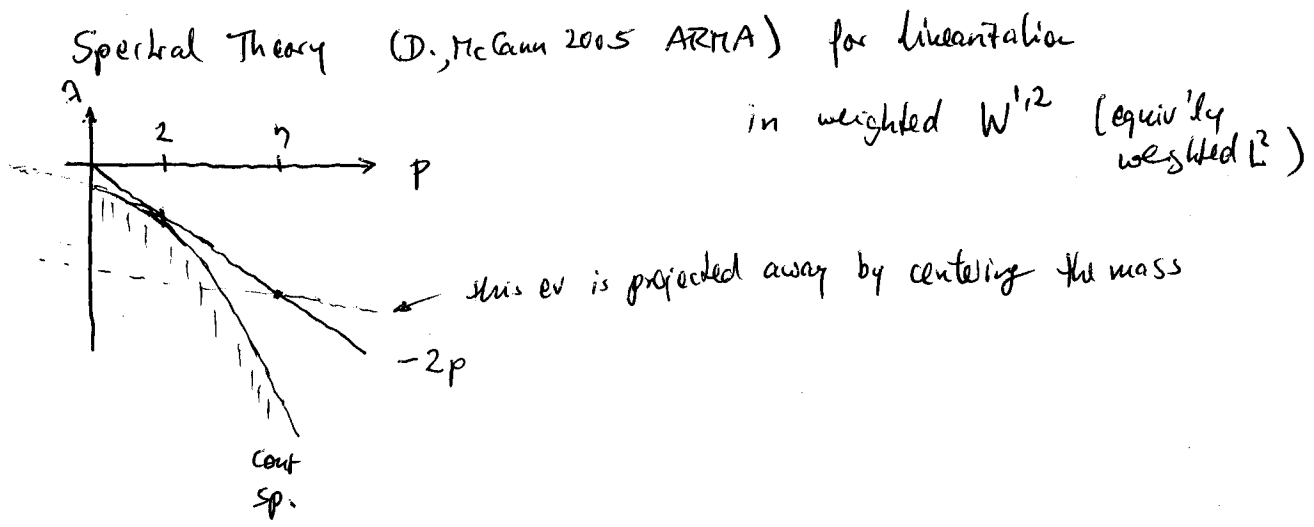 Spectral Theory (D., McCann 2005 ARMA) for linearization
in weighted W^{1,2} (equiv'ly
weighted L²)
λ
2
n
p
this ev is projected away by centering the mass
-2p
cont
sp.